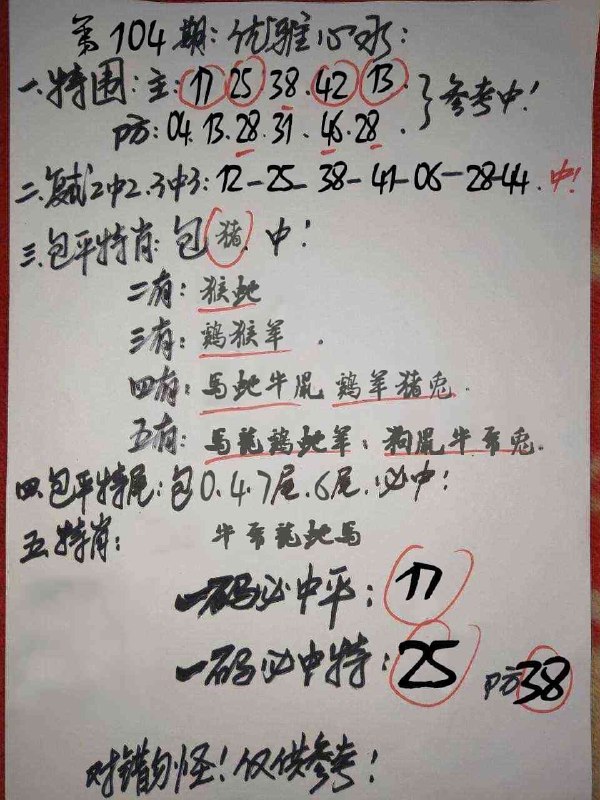 第104期:优雅心水:
一.特围:主:17 25 38.42 13 }参考中!
防:04.13.28.31.46.28.
二.复式2中2.3中3:12-25-38-41-06-28-44.中!
三.包平特肖:包猪.中!
二有:猴蛇
三有:鷄猴羊.
四有:馬蛇牛鼠 鷄羊猪兎.
五有:馬龍鷄蛇羊、狗鼠牛兎.
四.包平特尾:包0.4.7尾.6尾.必中!
五.特肖:牛龍蛇馬
一码必中平:17
一码必中特:25 防38
对错勿怪!仅供参考!